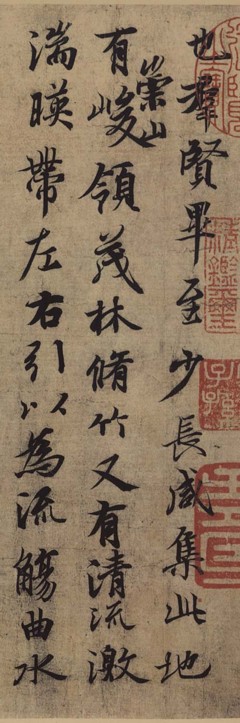 也群賢畢至少長咸集此地
有崇山峻領茂林脩竹又有清流激
湍暎帶左右引以為流觴曲水